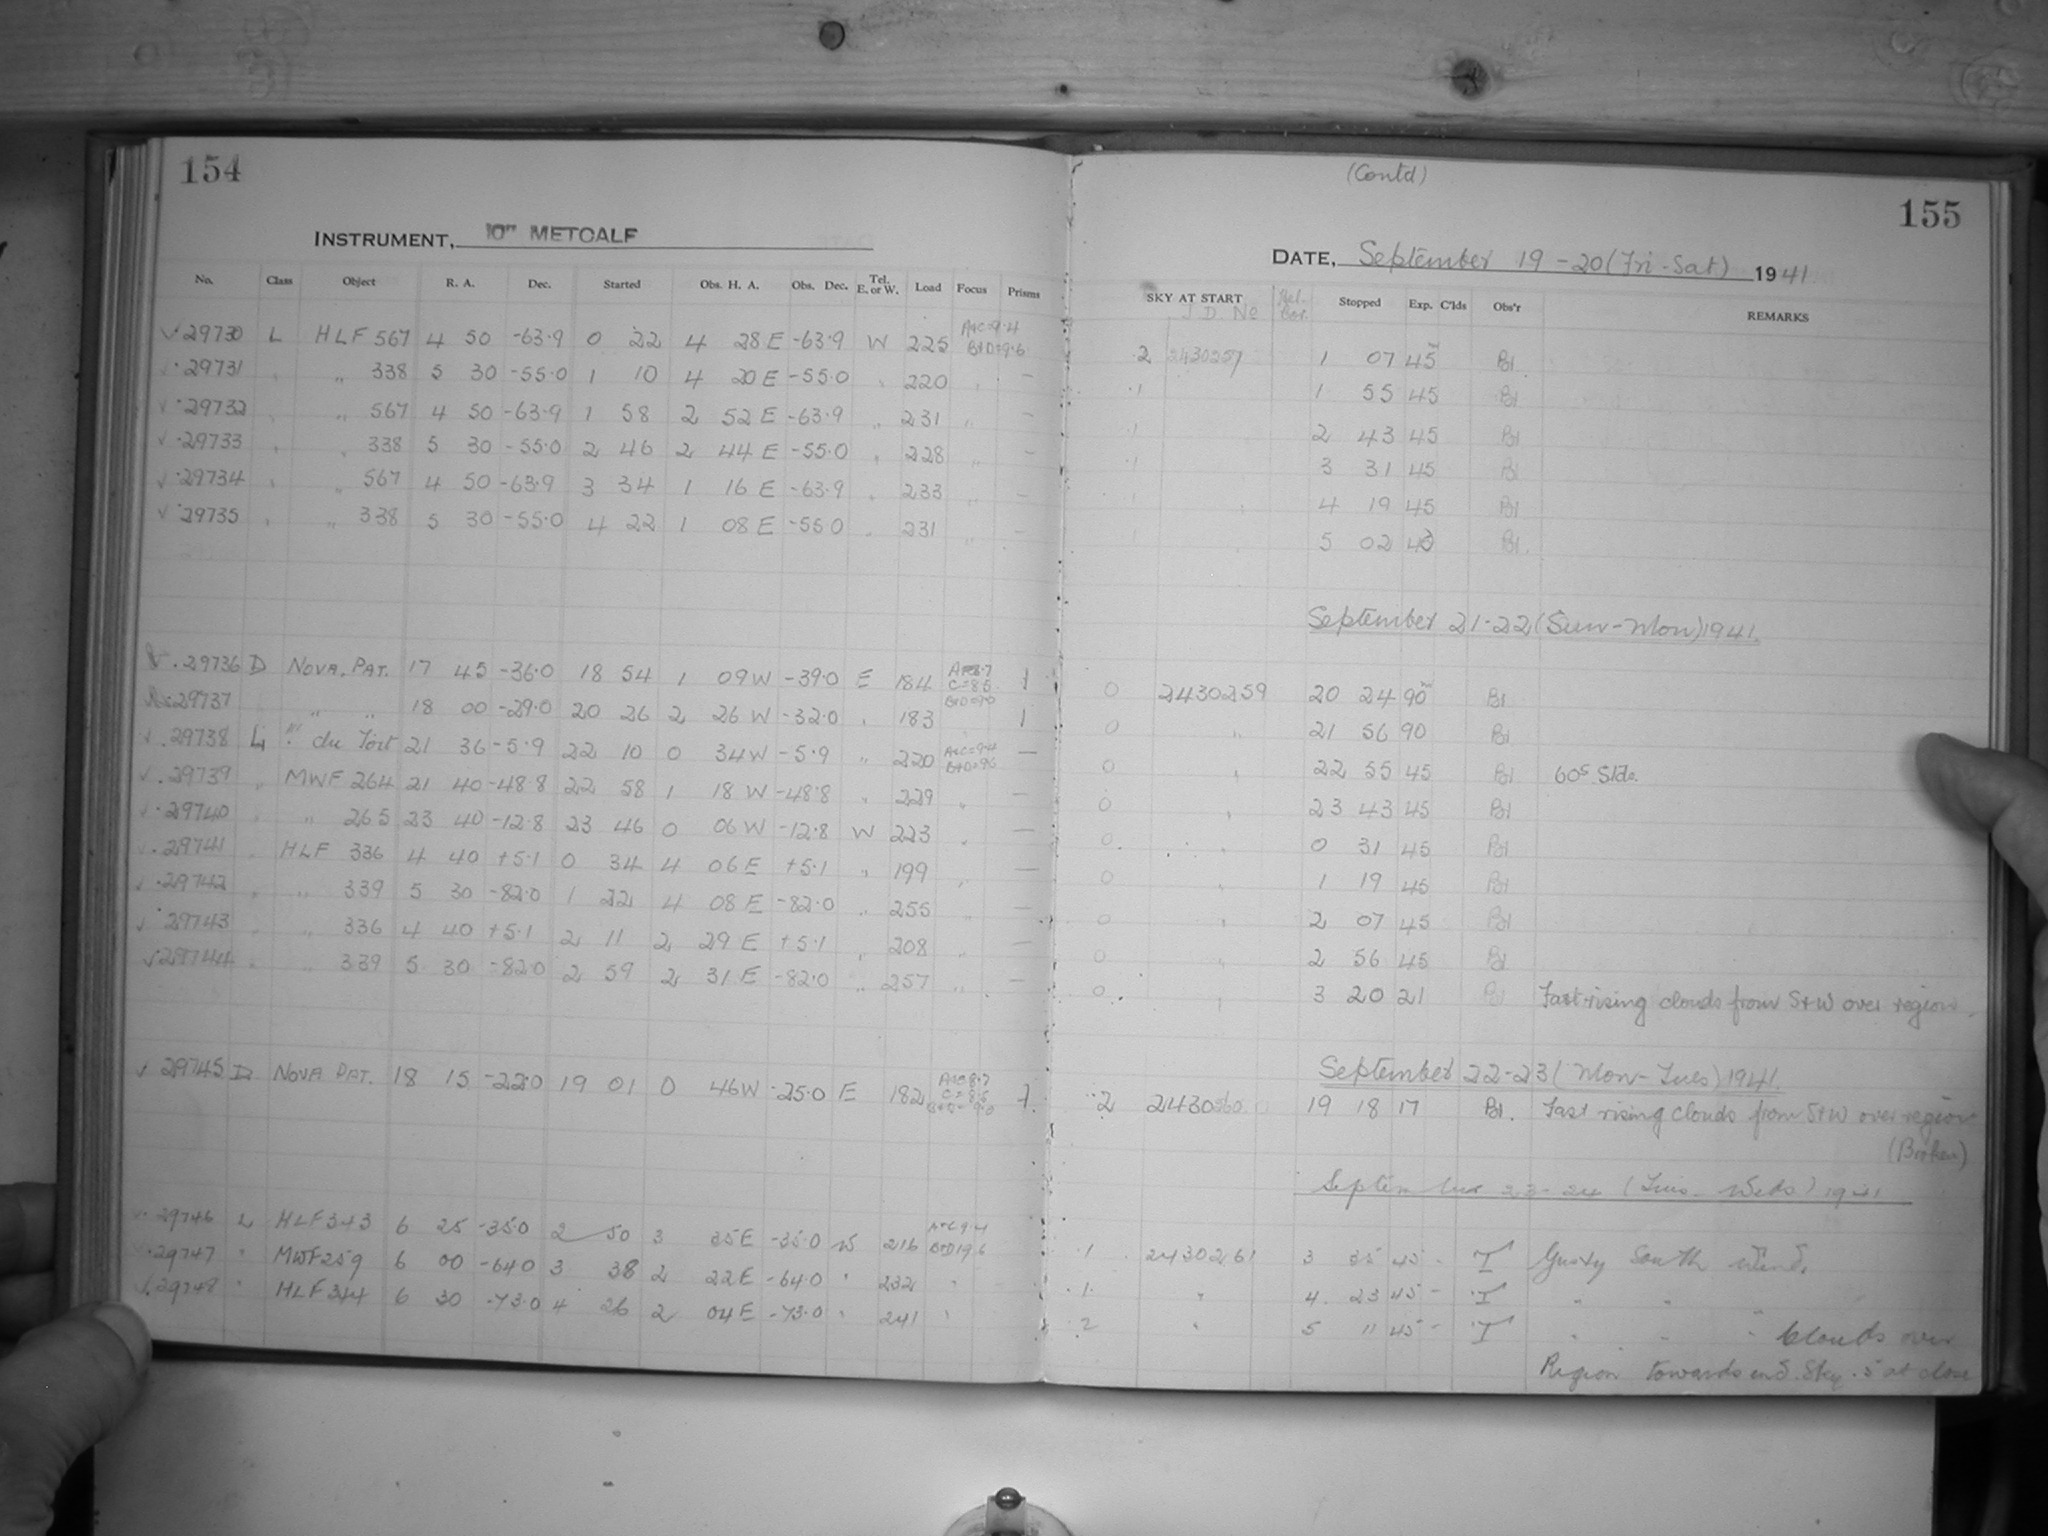 154
INSTRUMENT, 10" METCALF
No. Class Object R. A. Dec. Started Obs. H. A. Obs. Dec. Tel. E. or W. Load Focus Prisms
29730 L HLF 567 4 50 -63.9 0 22 4 28 E -63.9 W 225 A+C=9.4 B+D=9.6
29731 " " 338 5 30 -55.0 1 10 4 20 E -55.0 " 220 " —
29732 " " 567 4 50 -63.9 1 58 2 52 E -63.9 " 231 " —
29733 " " 338 5 30 -55.0 2 46 2 44 E -55.0 " 228 " —
29734 " " 567 4 50 -63.9 3 34 1 16 E -63.9 " 233 " —
29735 " " 338 5 30 -55.0 4 22 1 08 E -55.0 " 231 " —
29736 D NOVA. PAT. 17 45 -36.0 18 54 1 09 W -39.0 E 184 C=8.5 1
29737 " " 18 00 -29.0 20 26 2 26 W -32.0 " 183 1
29738 L du Toit 21 36 -5.9 22 10 0 34 W -5.9 " 220 A+C=9.4 B+D=9.6 —
29739 " MWF 264 21 40 -48.8 22 58 1 18 W -48.8 " 229 " —
29740 " " 265 23 40 -12.8 23 46 0 06 W -12.8 W 223 " —
29741 " HLF 336 4 40 +5.1 0 34 4 06 E +5.1 " 199 " —
29742 " " 339 5 30 -82.0 1 22 4 08 E -82.0 " 255 " —
29743 " " 336 4 40 +5.1 2 11 2 29 E +5.1 " 208 " —
29744 " " 339 5 30 -82.0 2 59 2 31 E -82.0 " 257 " —
29745 D NOVA PAT. 18 15 -22.0 19 01 0 46 W -25.0 E 182 A+C=8.7 C=8.5 B+D=9.0 1
29746 L HLF 343 6 25 -35.0 2 50 3 35 E -35.0 W 216 A+C 9.4 B+D 9.6
29747 " MWF 259 6 00 -64.0 3 38 2 22 E -64.0 " 232 "
29748 " HLF 344 6 30 -73.0 4 26 2 04 E -73.0 " 241 "
(Contd)
155
DATE, September 19-20 (Fri-Sat) 1941.
SKY AT START J.D. No Stopped Exp. C'lds Obs'r REMARKS
2 2430257 1 07 45m Bl.
1 1 55 45 Bl
1 2 43 45 Bl
1 3 31 45 Bl
1 4 19 45 Bl
1 5 02 40 Bl.
September 21-22 (Sun-Mon) 1941.
0 2430259 20 24 90m Bl
0 " 21 56 90 Bl
0 " 22 55 45 Bl 60s Slde.
0 " 23 43 45 Bl
0 " 0 31 45 Bl
0 " 1 19 45 Bl
0 " 2 07 45 Bl
0 " 2 56 45 Bl
0 " 3 20 21 Bl Fast rising clouds from S+W over region.
September 22-23 (Mon-Tues) 1941.
2 2430260 19 18 17 Bl. Fast rising clouds from S+W over region
(Broken)
September 23-24 (Tues. Weds) 1941
1 2430261 3 35 45 - T Gusty South Wind.
1 " 4 23 45 - T " " "
2 " 5 11 45 - T " " " Clouds over
Region towards end. Sky .5 at close